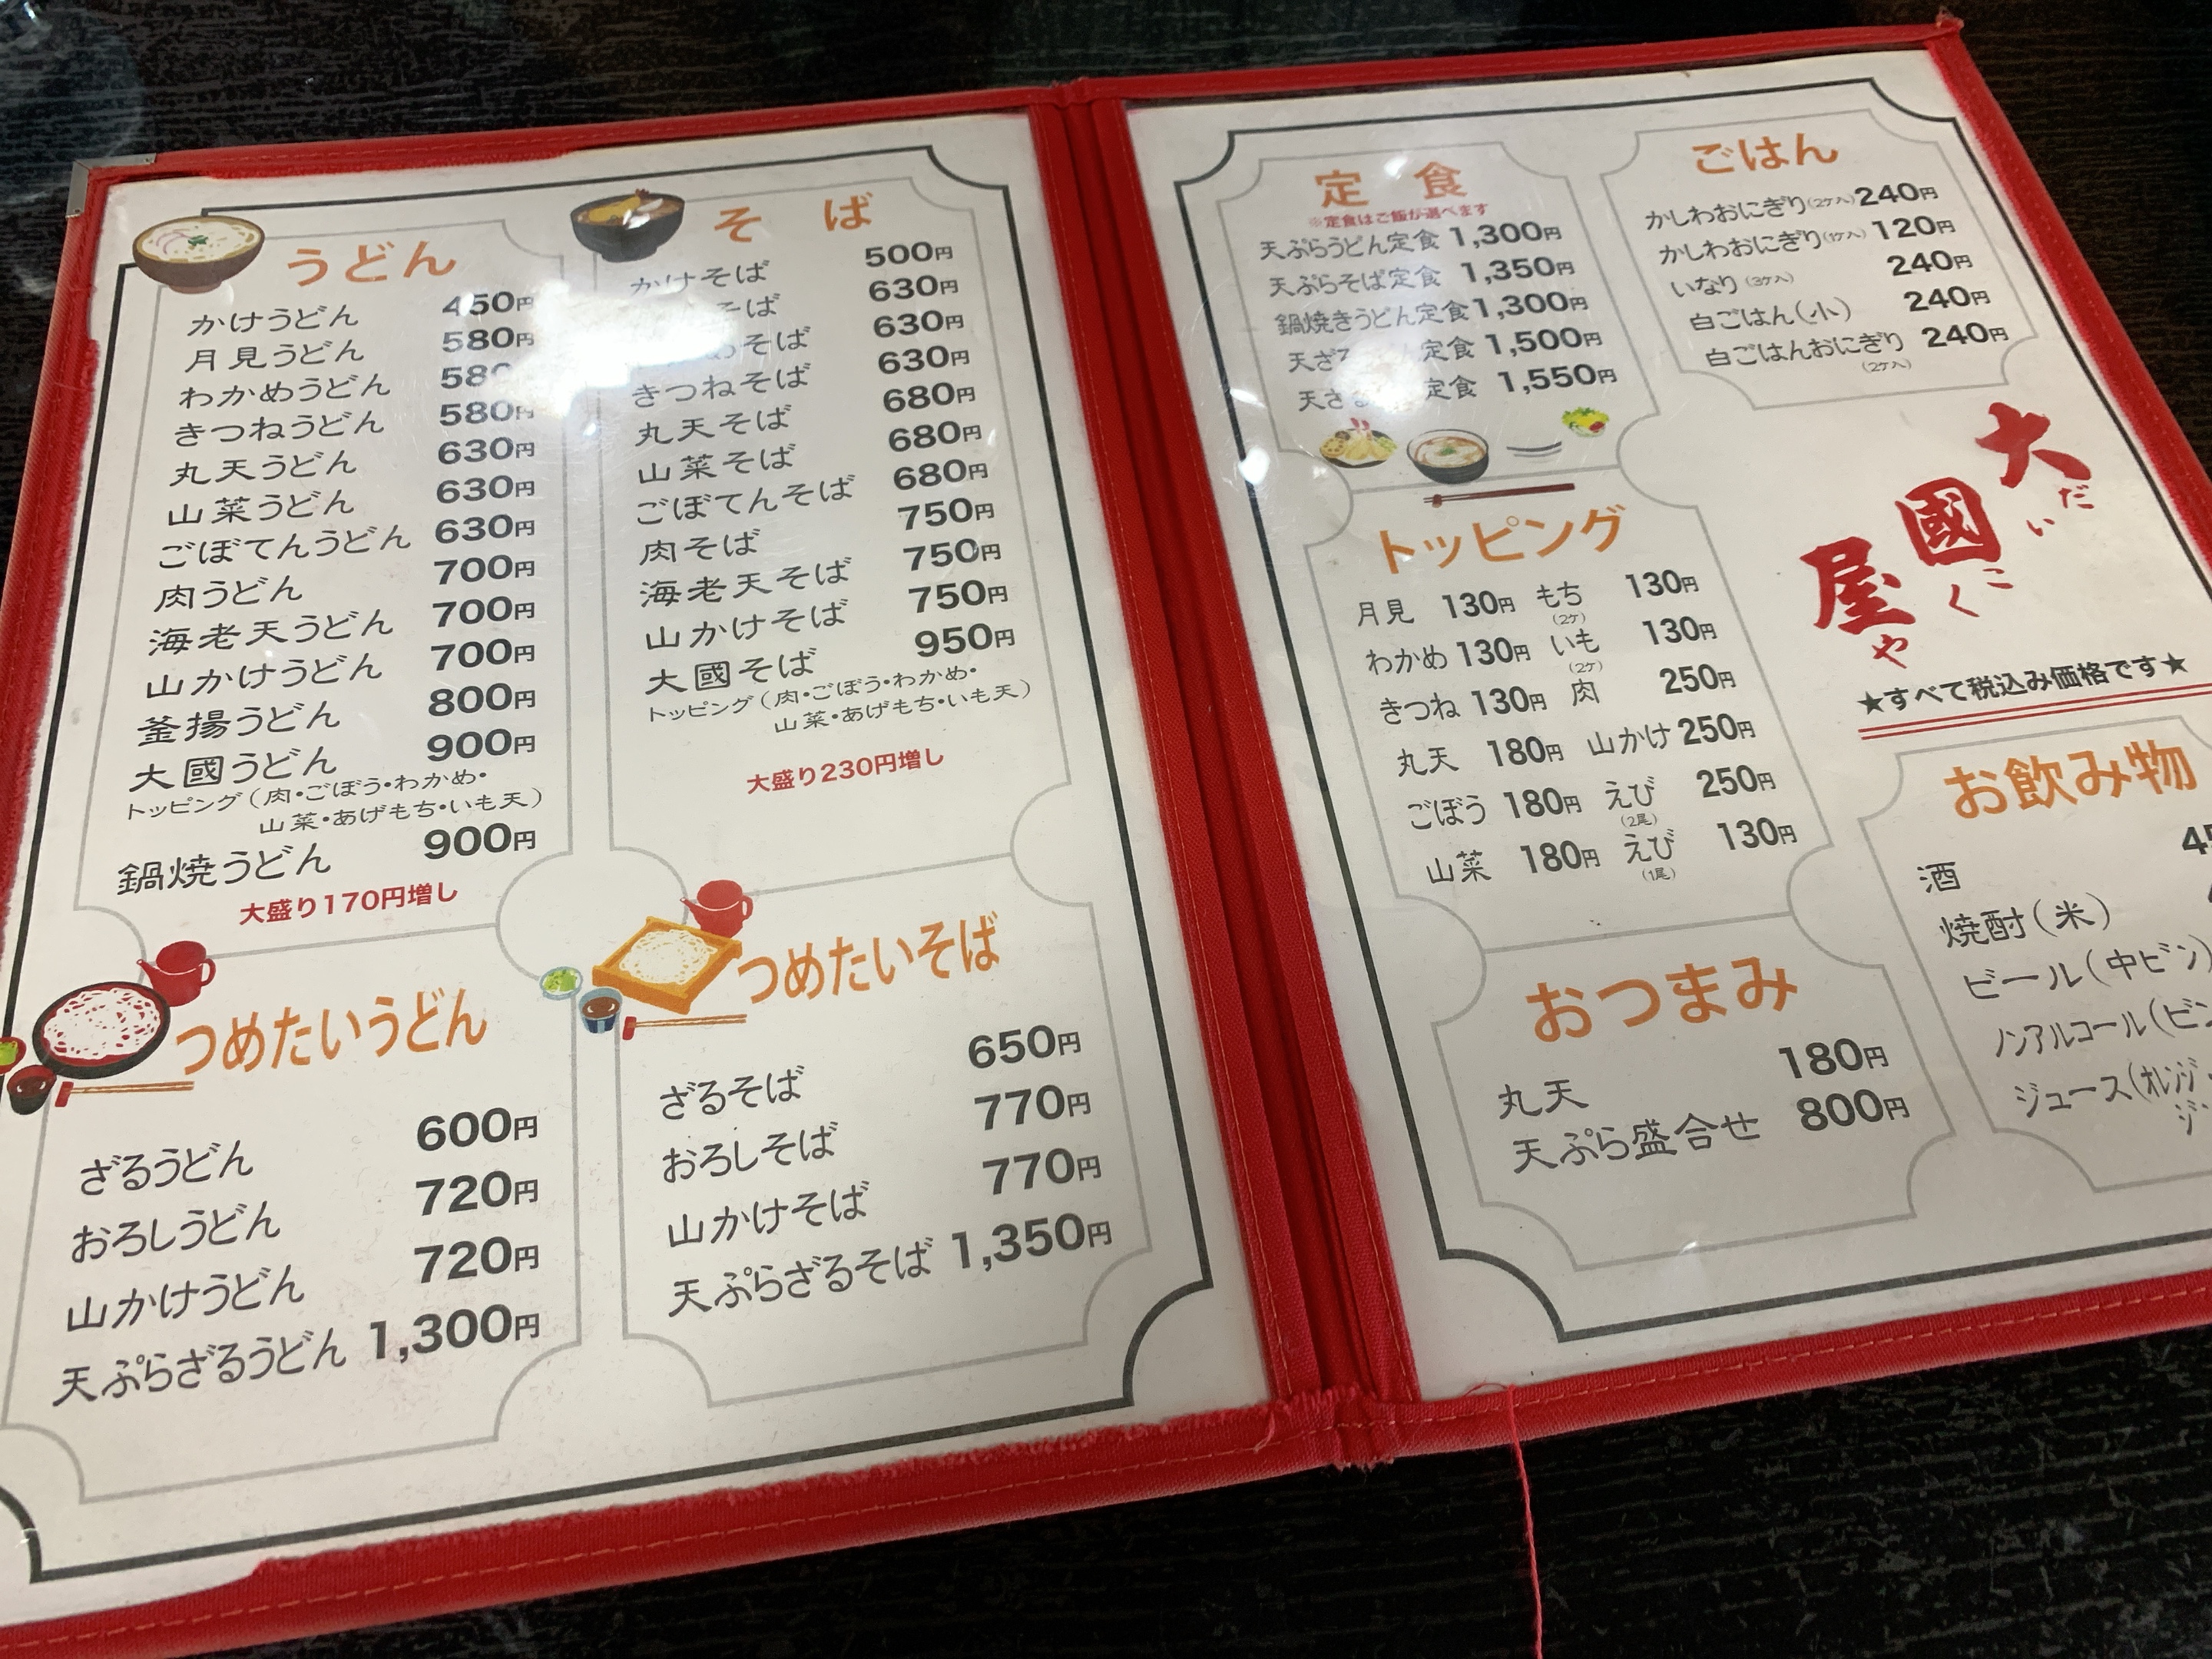 うどん
かけうどん 450円
月見うどん 580円
わかめうどん 580
きつねうどん 580円
丸天うどん 630円
山菜うどん 630円
ごぼてんうどん 630円
肉うどん 700円
海老天うどん 700円
山かけうどん 700円
釜揚うどん 800円
大國うどん 900円
トッピング(肉・ごぼう・わかめ・
山菜・あげもち・いも天)
鍋焼うどん 900円
大盛り170円増し
そば
かけそば 500円
そば 630円
そば 630円
きつねそば 630円
丸天そば 680円
山菜そば 680円
ごぼてんそば 680円
肉そば 750円
海老天そば 750円
山かけそば 750円
大國そば 950円
トッピング(肉・ごぼう・わかめ・
山菜・あげもち・いも天)
大盛り230円増し
つめたいうどん
ざるうどん 600円
おろしうどん 720円
山かけうどん 720円
天ぷらざるうどん 1,300円
つめたいそば
ざるそば 650円
おろしそば 770円
山かけそば 770円
天ぷらざるそば 1,350円
定食
※定食はご飯が選べます
天ぷらうどん定食 1,300円
天ぷらそば定食 1,350円
鍋焼きうどん定食 1,300円
天ざる 定食 1,500円
天ざ 定食 1,550円
ごはん
かしわおにぎり(2ケ入) 240円
かしわおにぎり(1ケ入) 120円
いなり(3ケ入) 240円
白ごはん(小) 240円
白ごはんおにぎり 240円
(2ケ入)
トッピング
月見 130円 もち(2ケ) 130円
わかめ 130円 いも(2ケ) 130円
きつね 130円 肉 250円
丸天 180円 山かけ 250円
ごぼう 180円 えび(2尾) 250円
山菜 180円 えび(1尾) 130円
大國屋
だいこくや
★すべて税込み価格です★
おつまみ
丸天 180円
天ぷら盛合せ 800円
お飲み物
酒
焼酎(米)
ビール(中ビン)
ノンアルコール(ビ
ジュース(オレンジ